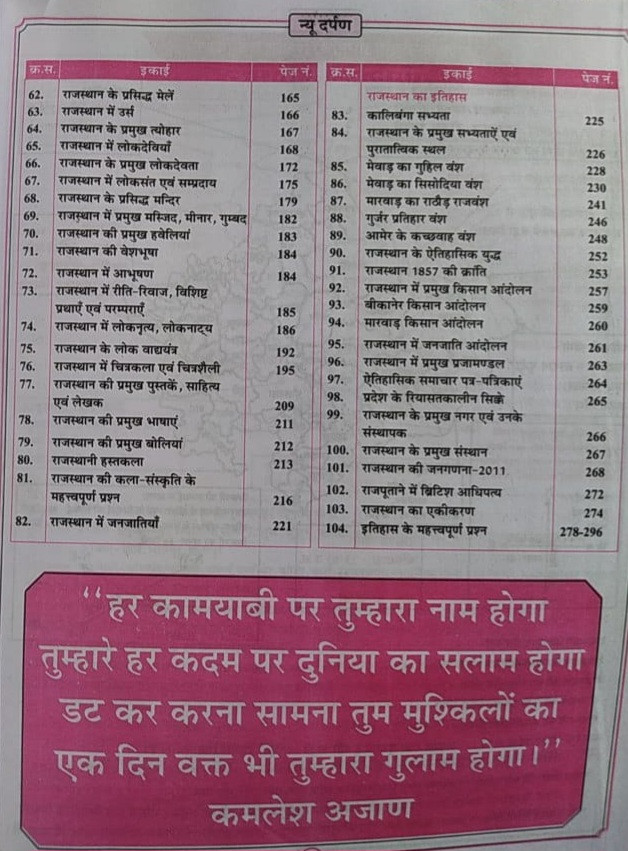 न्यू दर्पण
क्र.स. इकाई पेज नं.
62. राजस्थान के प्रसिद्ध मेलें 165
63. राजस्थान में उर्स 166
64. राजस्थान के प्रमुख त्योहार 167
65. राजस्थान में लोकदेवियाँ 168
66. राजस्थान के प्रमुख लोकदेवता 172
67. राजस्थान में लोकसंत एवं सम्प्रदाय 175
68. राजस्थान के प्रसिद्ध मन्दिर 179
69. राजस्थान में प्रमुख मस्जिद, मीनार, गुम्बद 182
70. राजस्थान की प्रमुख हवेलियां 183
71. राजस्थान की वेशभूषा 184
72. राजस्थान में आभूषण 184
73. राजस्थान में रीति-रिवाज, विशिष्ट
प्रथाएँ एवं परम्पराएँ 185
74. राजस्थान में लोकनृत्य, लोकनाट्य 186
75. राजस्थान के लोक वाद्ययंत्र 192
76. राजस्थान में चित्रकला एवं चित्रशैली 195
77. राजस्थान की प्रमुख पुस्तकें, साहित्य
एवं लेखक 209
78. राजस्थान की प्रमुख भाषाएं 211
79. राजस्थान की प्रमुख बोलियां 212
80. राजस्थानी हस्तकला 213
81. राजस्थान की कला-संस्कृति के
महत्त्वपूर्ण प्रश्न 216
82. राजस्थान में जनजातियाँ 221
क्र.स. इकाई पेज नं.
राजस्थान का इतिहास
83. कालिबंगा सभ्यता 225
84. राजस्थान के प्रमुख सभ्यताऐं एवं
पुरातात्विक स्थल 226
85. मेवाड़ का गुहिल वंश 228
86. मेवाड़ का सिसोदिया वंश 230
87. मारवाड़ का राठौड़ राजवंश 241
88. गुर्जर प्रतिहार वंश 246
89. आमेर के कच्छवाह वंश 248
90. राजस्थान के ऐतिहासिक युद्ध 252
91. राजस्थान 1857 की क्रांति 253
92. राजस्थान में प्रमुख किसान आंदोलन 257
93. बीकानेर किसान आंदोलन 259
94. मारवाड़ किसान आंदोलन 260
95. राजस्थान में जनजाति आंदोलन 261
96. राजस्थान में प्रमुख प्रजामण्डल 263
97. ऐतिहासिक समाचार पत्र-पत्रिकाएं 264
98. प्रदेश के रियासतकालीन सिक्के 265
99. राजस्थान के प्रमुख नगर एवं उनके
संस्थापक 266
100. राजस्थान के प्रमुख संस्थान 267
101. राजस्थान की जनगणना-2011 268
102. राजपूताने में ब्रिटिश आधिपत्य 272
103. राजस्थान का एकीकरण 274
104. इतिहास के महत्त्वपूर्ण प्रश्न 278-296
‘‘हर कामयाबी पर तुम्हारा नाम होगा
तुम्हारे हर कदम पर दुनिया का सलाम होगा
डट कर करना सामना तुम मुश्किलों का
एक दिन वक्त भी तुम्हारा गुलाम होगा।’’
कमलेश अजाण